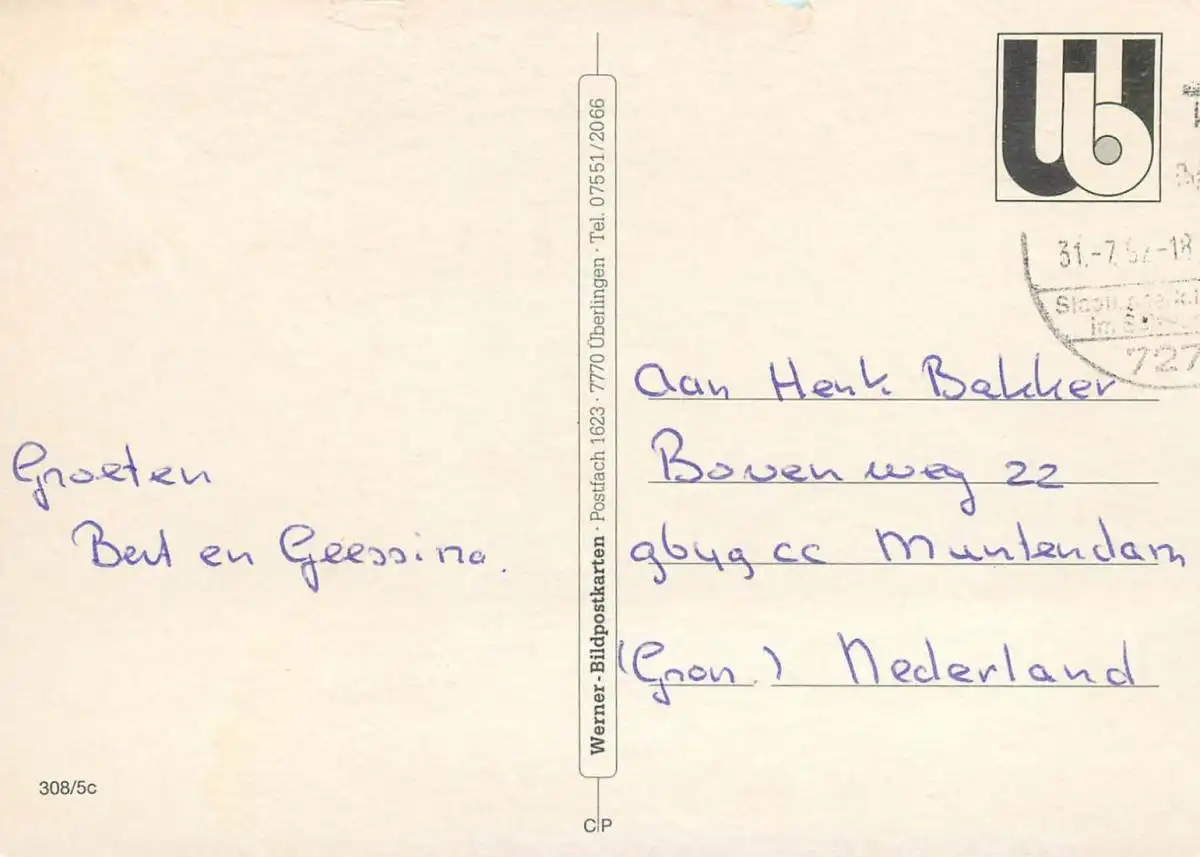 Groeten
Bert en Geessina.
308/5c
Werner-Bildpostkarten · Postfach 1623 · 7770 Überlingen · Tel. 07551/2066
C P
31.-7. -18
im
727
Aan Henk Bakker
Boven weg 22
9649 CC Muntendam
(Gron.) Nederland